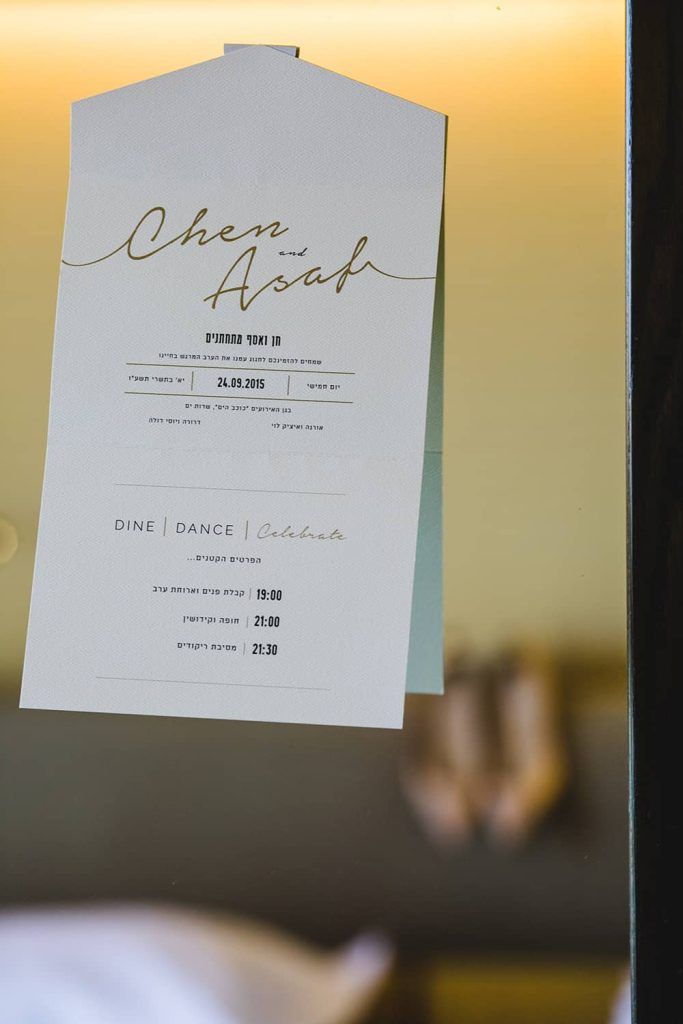 Chen
and
Asaf
חן ואסף מתחתנים
שמחים להזמינכם לחגוג עמנו את הערב המרגש בחיינו
יום חמישי | 24.09.2015 | יא' בתשרי תשע"ו
בגן האירועים "כוכב הים", שדות ים
אורנה ואיציק לוי דרורה ויוסי דולה
DINE | DANCE | Celebrate
הפרטים הקטנים...
19:00 | קבלת פנים וארוחת ערב
21:00 | חופה וקידושין
21:30 | מסיבת ריקודים